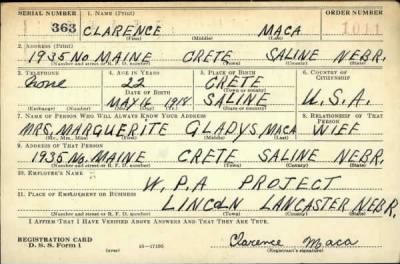 SERIAL NUMBER 1. NAME (Print) ORDER NUMBER
363 CLARENCE MACA 1011
(First) (Middle) (Last)
2. ADDRESS (Print)
1935 NO MAINE CRETE SALINE NEBR.
(Number and street or R. F. D. number) (Town) (County) (State)
3. TELEPHONE 4. AGE IN YEARS 5. PLACE OF BIRTH 6. COUNTRY OF CITIZENSHIP
None 22 CRETE
DATE OF BIRTH (Town or county)
MAY 16 1918 SALINE U.S.A.
(Exchange) (Number) (Mo.) (Day) (Yr.) (State or country)
7. NAME OF PERSON WHO WILL ALWAYS KNOW YOUR ADDRESS 8. RELATIONSHIP OF THAT PERSON
MRS. MARGUERITE GLADYS MACA WIFE
(Mr., Mrs., Miss) (First) (Middle) (Last)
9. ADDRESS OF THAT PERSON
1935 NO. MAINE CRETE SALINE NEBR.
(Number and street or R. F. D. number) (Town) (County) (State)
10. EMPLOYER'S NAME
W.P.A PROJECT
11. PLACE OF EMPLOYMENT OR BUSINESS
LINCOLN LANCASTER NEBR.
(Number and street or R. F. D. number) (Town) (County) (State)
I AFFIRM THAT I HAVE VERIFIED ABOVE ANSWERS AND THAT THEY ARE TRUE.
REGISTRATION CARD
D. S. S. Form 1 16-17105 Clarence Maca
(Registrant's signature)